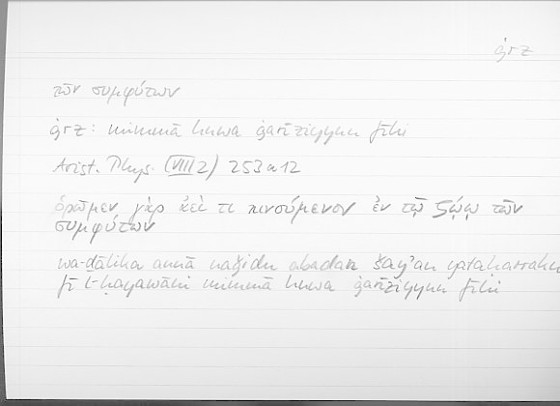 ġrz
τῶν συμφύτων
ġrz: mimmā huwa ġarīziyyun fīhi
Arist. Phys. (VIII 2) 253 a 12
ὁρῶμεν γὰρ ἀεί τι κινούμενον ἐν τῷ ζῴῳ τῶν
συμφύτων
wa-ḏālika annā naǧidu abadan šayʾan yataḥarraku
fī l-ḥayawāni mimmā huwa ġarīziyyun fīhi